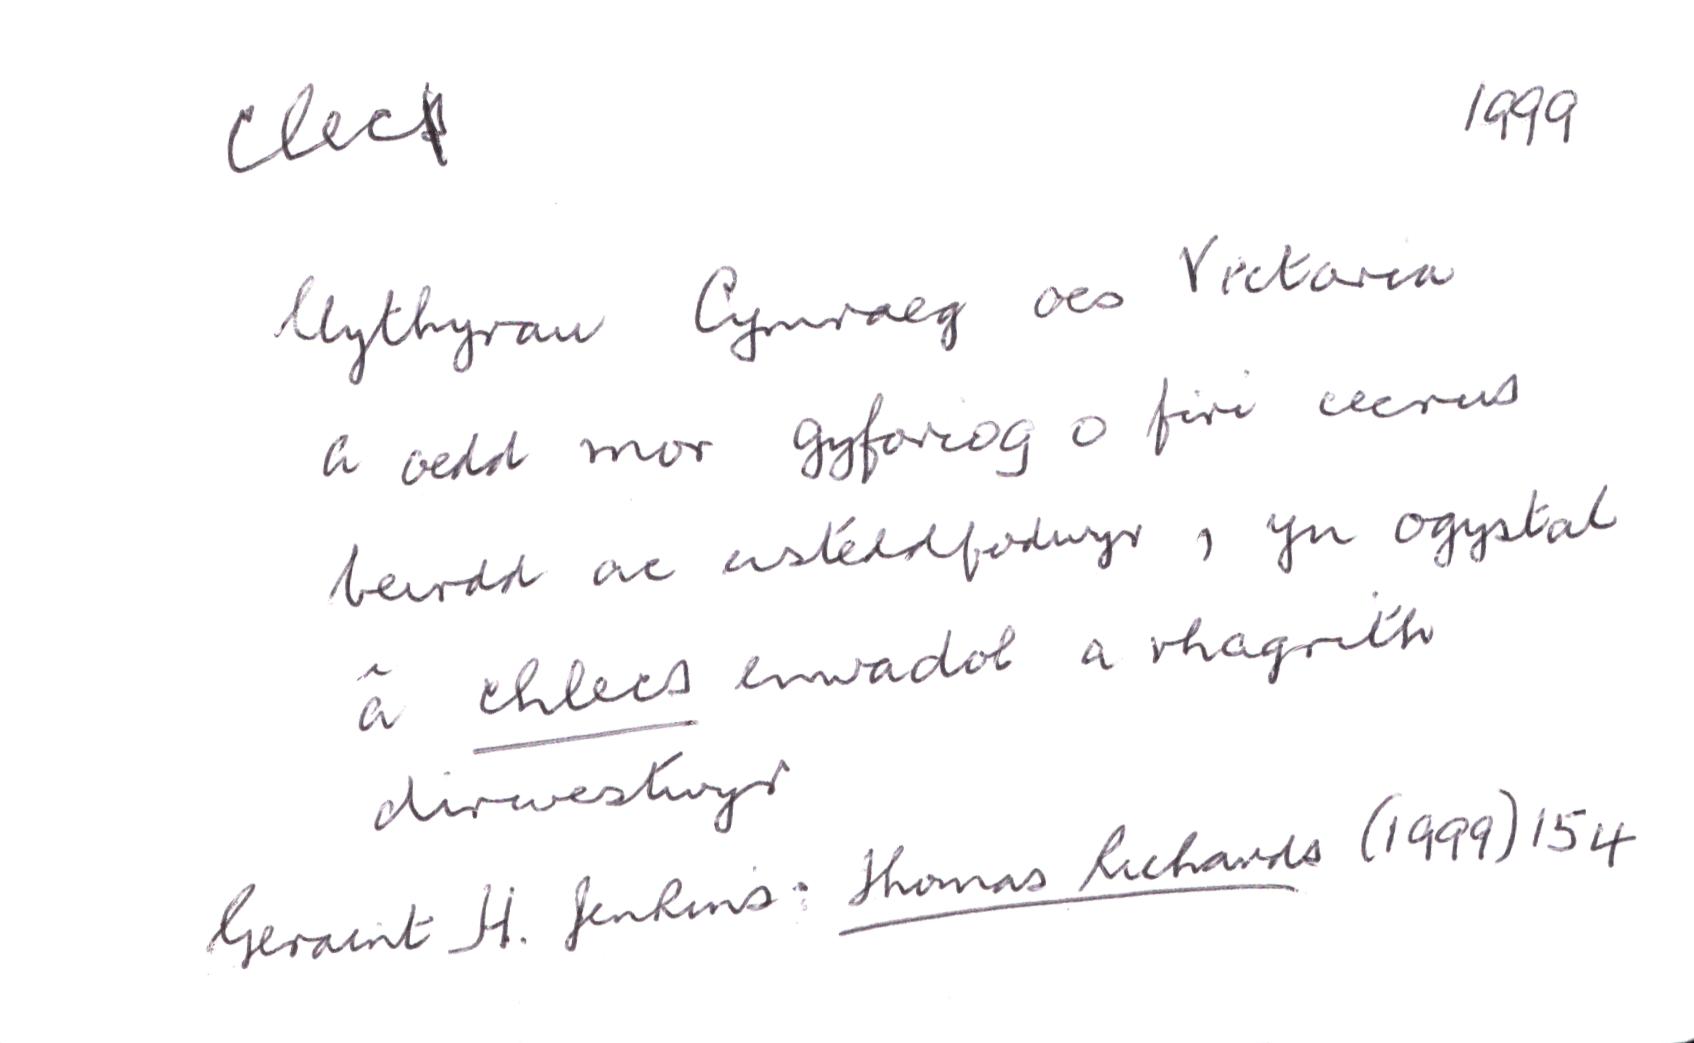 clec 1999
llythyrau Cymraeg oes Victoria
a oedd mor gyforiog o firi cecrus
beirdd ac eisteddfodwyr, yn ogystal
â chlecs enwadol a rhagrith
dirwestwyr
Geraint H. Jenkins: Thomas Richards (1999) 154